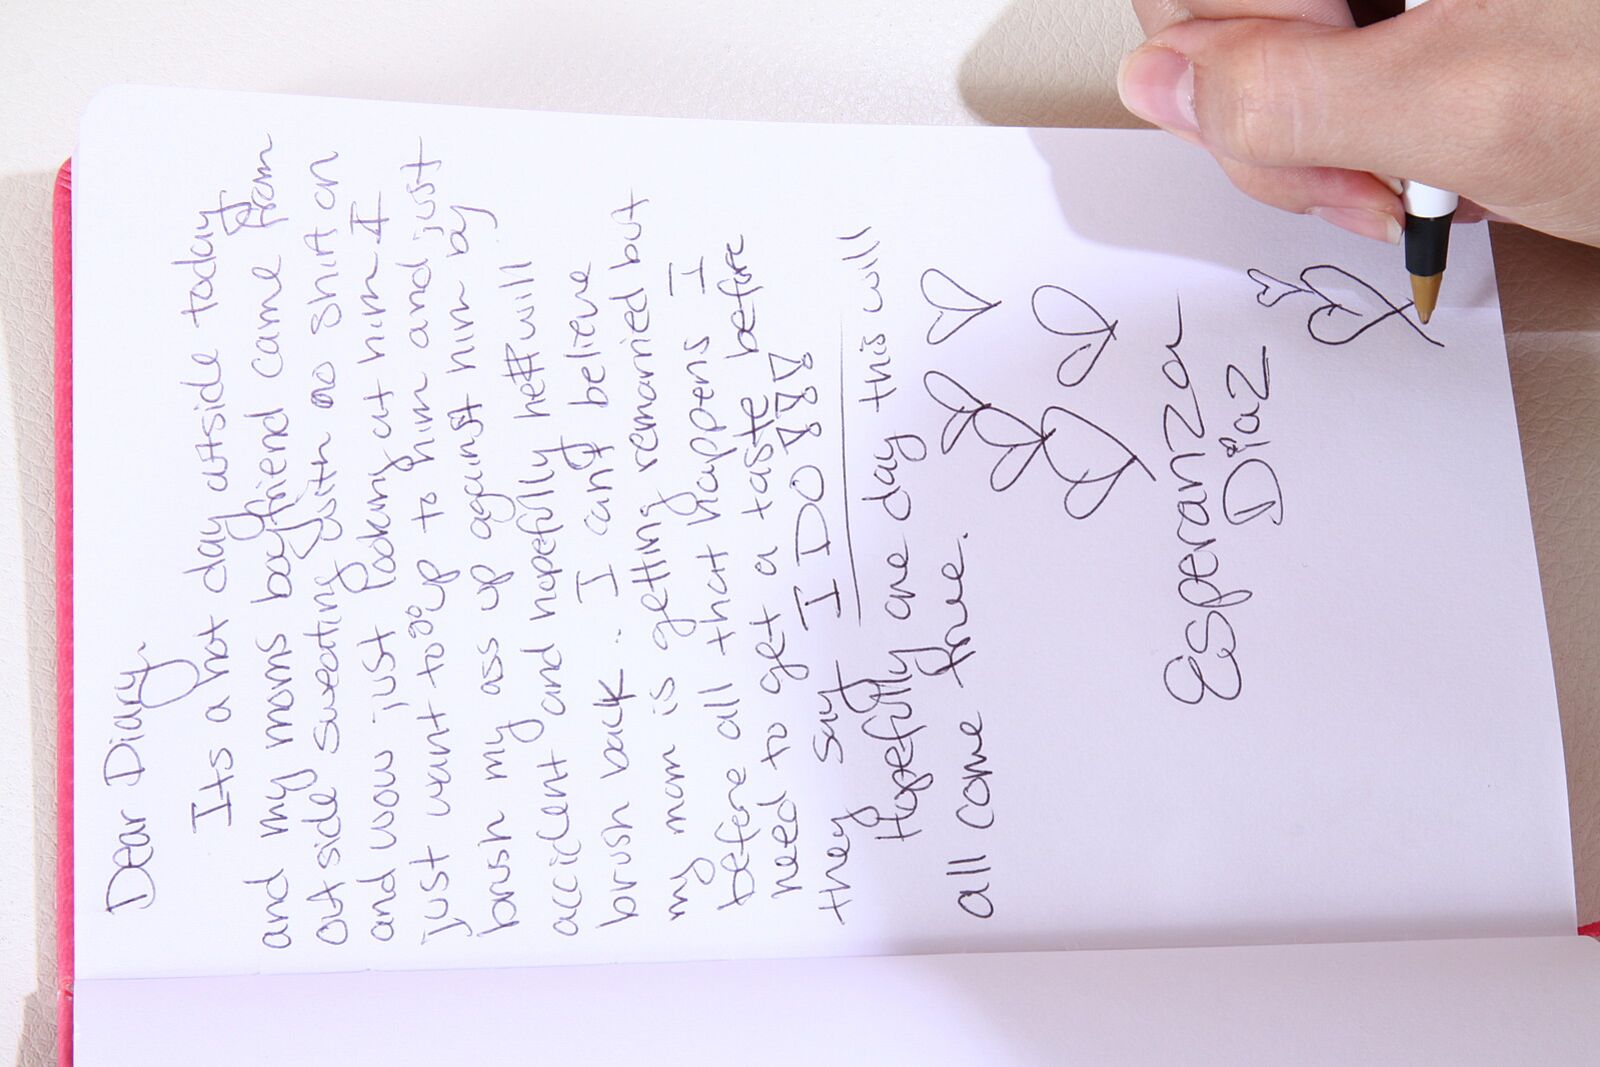 Dear Diary.
Its a hot day outside today
and my moms boyfriend came from
outside sweating with no shirt on
and wow just looking at him I
just want to go up to him and just
brush my ass up against him by
accident and hopefully he will
brush back. I cant believe
my mom is getting remarried but
before all that happens I
need to get a taste before
they say I DO
Hopefully one day this will
all come true.
Esperanza
Diaz